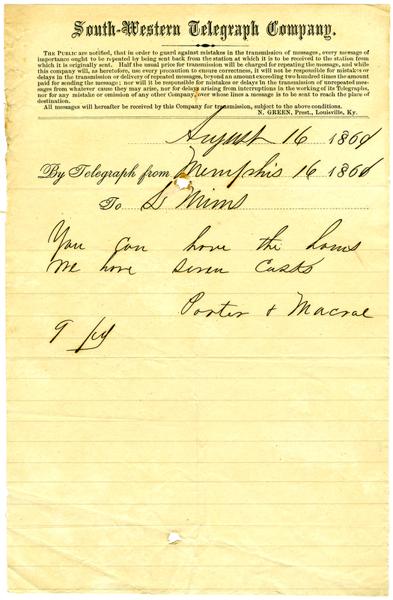 South-Western Telegraph Company.
The Public are notified, that in order to guard against mistakes in the transmission of messages, every message of
importance ought to be repeated by being sent back from the station at which it is to be received to the station from
which it is originally sent. Half the usual price for transmission will be charged for repeating the message, and while
this company will, as heretofore, use every precaution to ensure correctness, it will not be responsible for mistakes or
delays in the transmission or delivery of repeated messages, beyond an amount exceeding two hundred times the amount
paid for sending the message; nor will it be responsible for mistakes or delays in the transmission of unrepeated mes-
sages from whatever cause they may arise, nor for delays arising from interruptions in the working of its Telegraphs,
nor for any mistake or omission of any other Company, over whose lines a message is to be sent to reach the place of
destination.
All messages will hereafter be received by this Company for transmission, subject to the above conditions.
N. GREEN, Prest., Louisville, Ky.
August 16 1860
By Telegraph from Memphis 16 1860
To S Mims
You can have the hams
We have seven Casks
Porter & Macrae
9